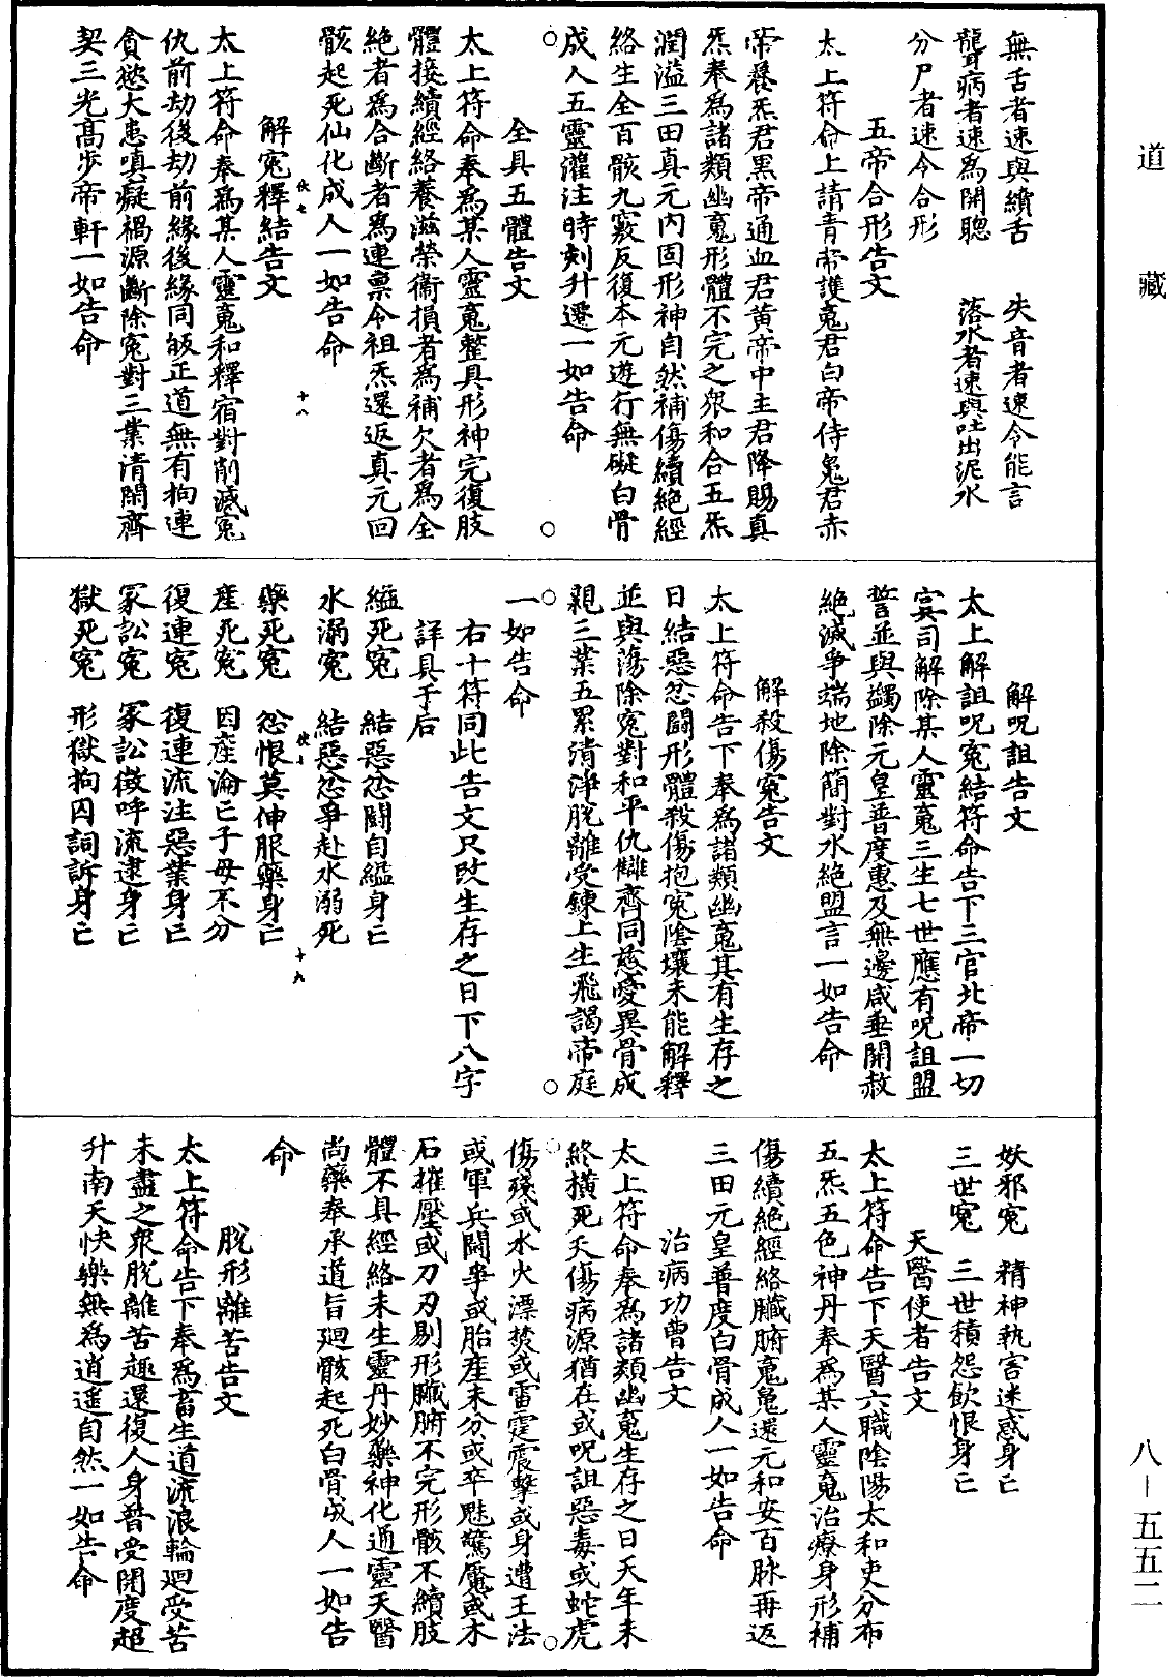 道藏
八-五五二
無舌者速與續舌　失音者速令能言
聾病者速為開聰　落水者速與吐出泥水
分尸者速令合形
五帝合形告文
太上符命上請青帝護䰟君白帝侍䰟君赤
帝養炁君黑帝通血君黃帝中主君降賜真
炁奉為諸類幽䰟形體不完之眾和合五炁
潤溢三田真元內固形神自然補傷續絕經
絡生全百骸九竅反復本元遊行無礙白骨
成人五靈灌注時刻升遷一如告命
全具五體告文
太上符命奉為某人靈䰟整具形神完復肢
體接續經絡養滋榮衛損者為補欠者為全
絕者為合斷者為連禀令祖炁還返真元回
骸起死仙化成人一如告命
解寃釋結告文
太上符命奉為某人靈䰟和釋宿對削滅寃
仇前劫後劫前緣後緣同皈正道無有拘連
貪慾大恚嗔癡禍源斷除寃對三業清閑齊
契三光高步帝軒一如告命
解呪詛告文
太上解詛呪寃結符命告下三官北帝一切
寘司解除某人靈䰟三生七世應有呪詛盟
誓並與蠲除元皇普度惠及無邊咸垂開赦
絕滅爭端地除簡對水絕盟言一如告命
解殺傷寃告文
太上符命告下奉為諸類幽䰟其有生存之
日結惡忿鬪形體殺傷抱寃陰壤未能解釋
並與蕩除寃對和平仇讎齊同慈愛異骨成
親三業五累清淨脫離受鍊上生飛謁帝庭
一如告命
右十符同此告文只改生存之日下八字
詳具于后
縊死寃　結惡忿鬪自縊身亡
水溺寃　結惡忿爭赴水溺死
藥死寃　怨恨莫伸服藥身亡
產死寃　因產淪亡子母不分
復連寃　復連流注惡業身亡
冢訟寃　冢訟徵呼流逮身亡
獄死寃　形獄拘囚詞訴身亡
妖邪寃　精神執害迷惑身亡
三世寃　三世積怨飲恨身亡
天醫使者告文
太上符命告下天醫六職陰陽太和吏分布
五炁五色神丹奉為某人靈䰟治療身形補
傷續絕經絡臟腑䰟䰟還元和安百脉再返
三田元皇普度白骨成人一如告命
治病功曹告文
太上符命奉為諸類幽䰟生存之日天年未
終橫死夭傷病源猶在或呪詛惡毒或蛇虎
傷殘或水火漂焚或雷霆震擊或身遭王法
或軍兵鬪爭或胎產未分或卒魅驚魘或木
石摧壓或刀刃剔形臟腑不完形骸不續肢
體不具經絡未生靈丹妙藥神化通靈天醫
尚藥奉承道旨廻骸起死白骨成人一如告
命
脫形離苦告文
太上符命告下奉為畜生道流浪輪廻受苦
未盡之眾脫離苦趣還復人身普受開度超
升南天快樂無為逍遥自然一如告命